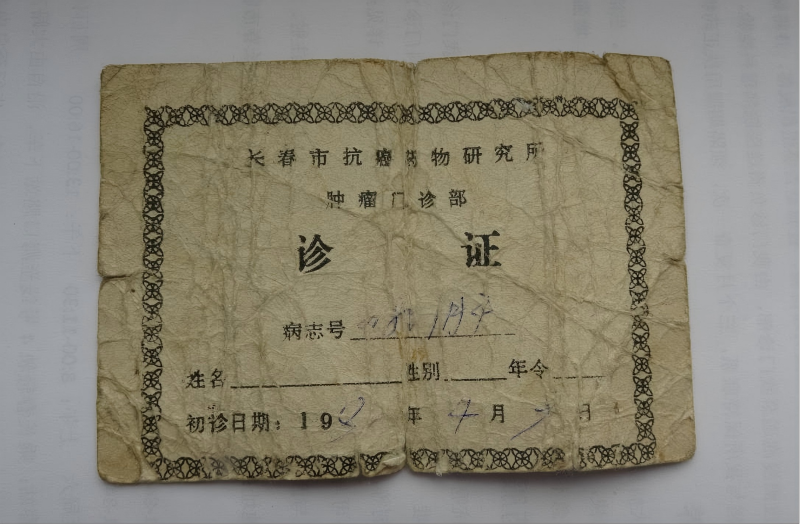 长春市抗癌药物研究所
肿瘤门诊部
诊 证
病志号
姓名 性别 年令
初诊日期：19 年 月 日